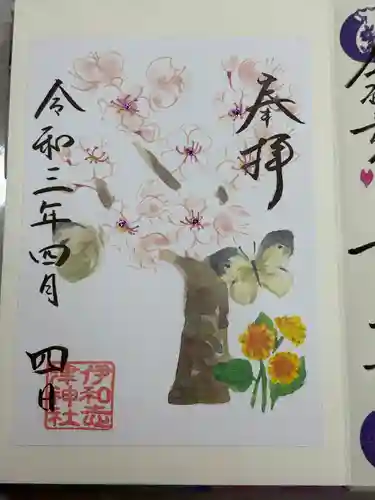 奉拝
令和三年四月四日
伊和志
津神社